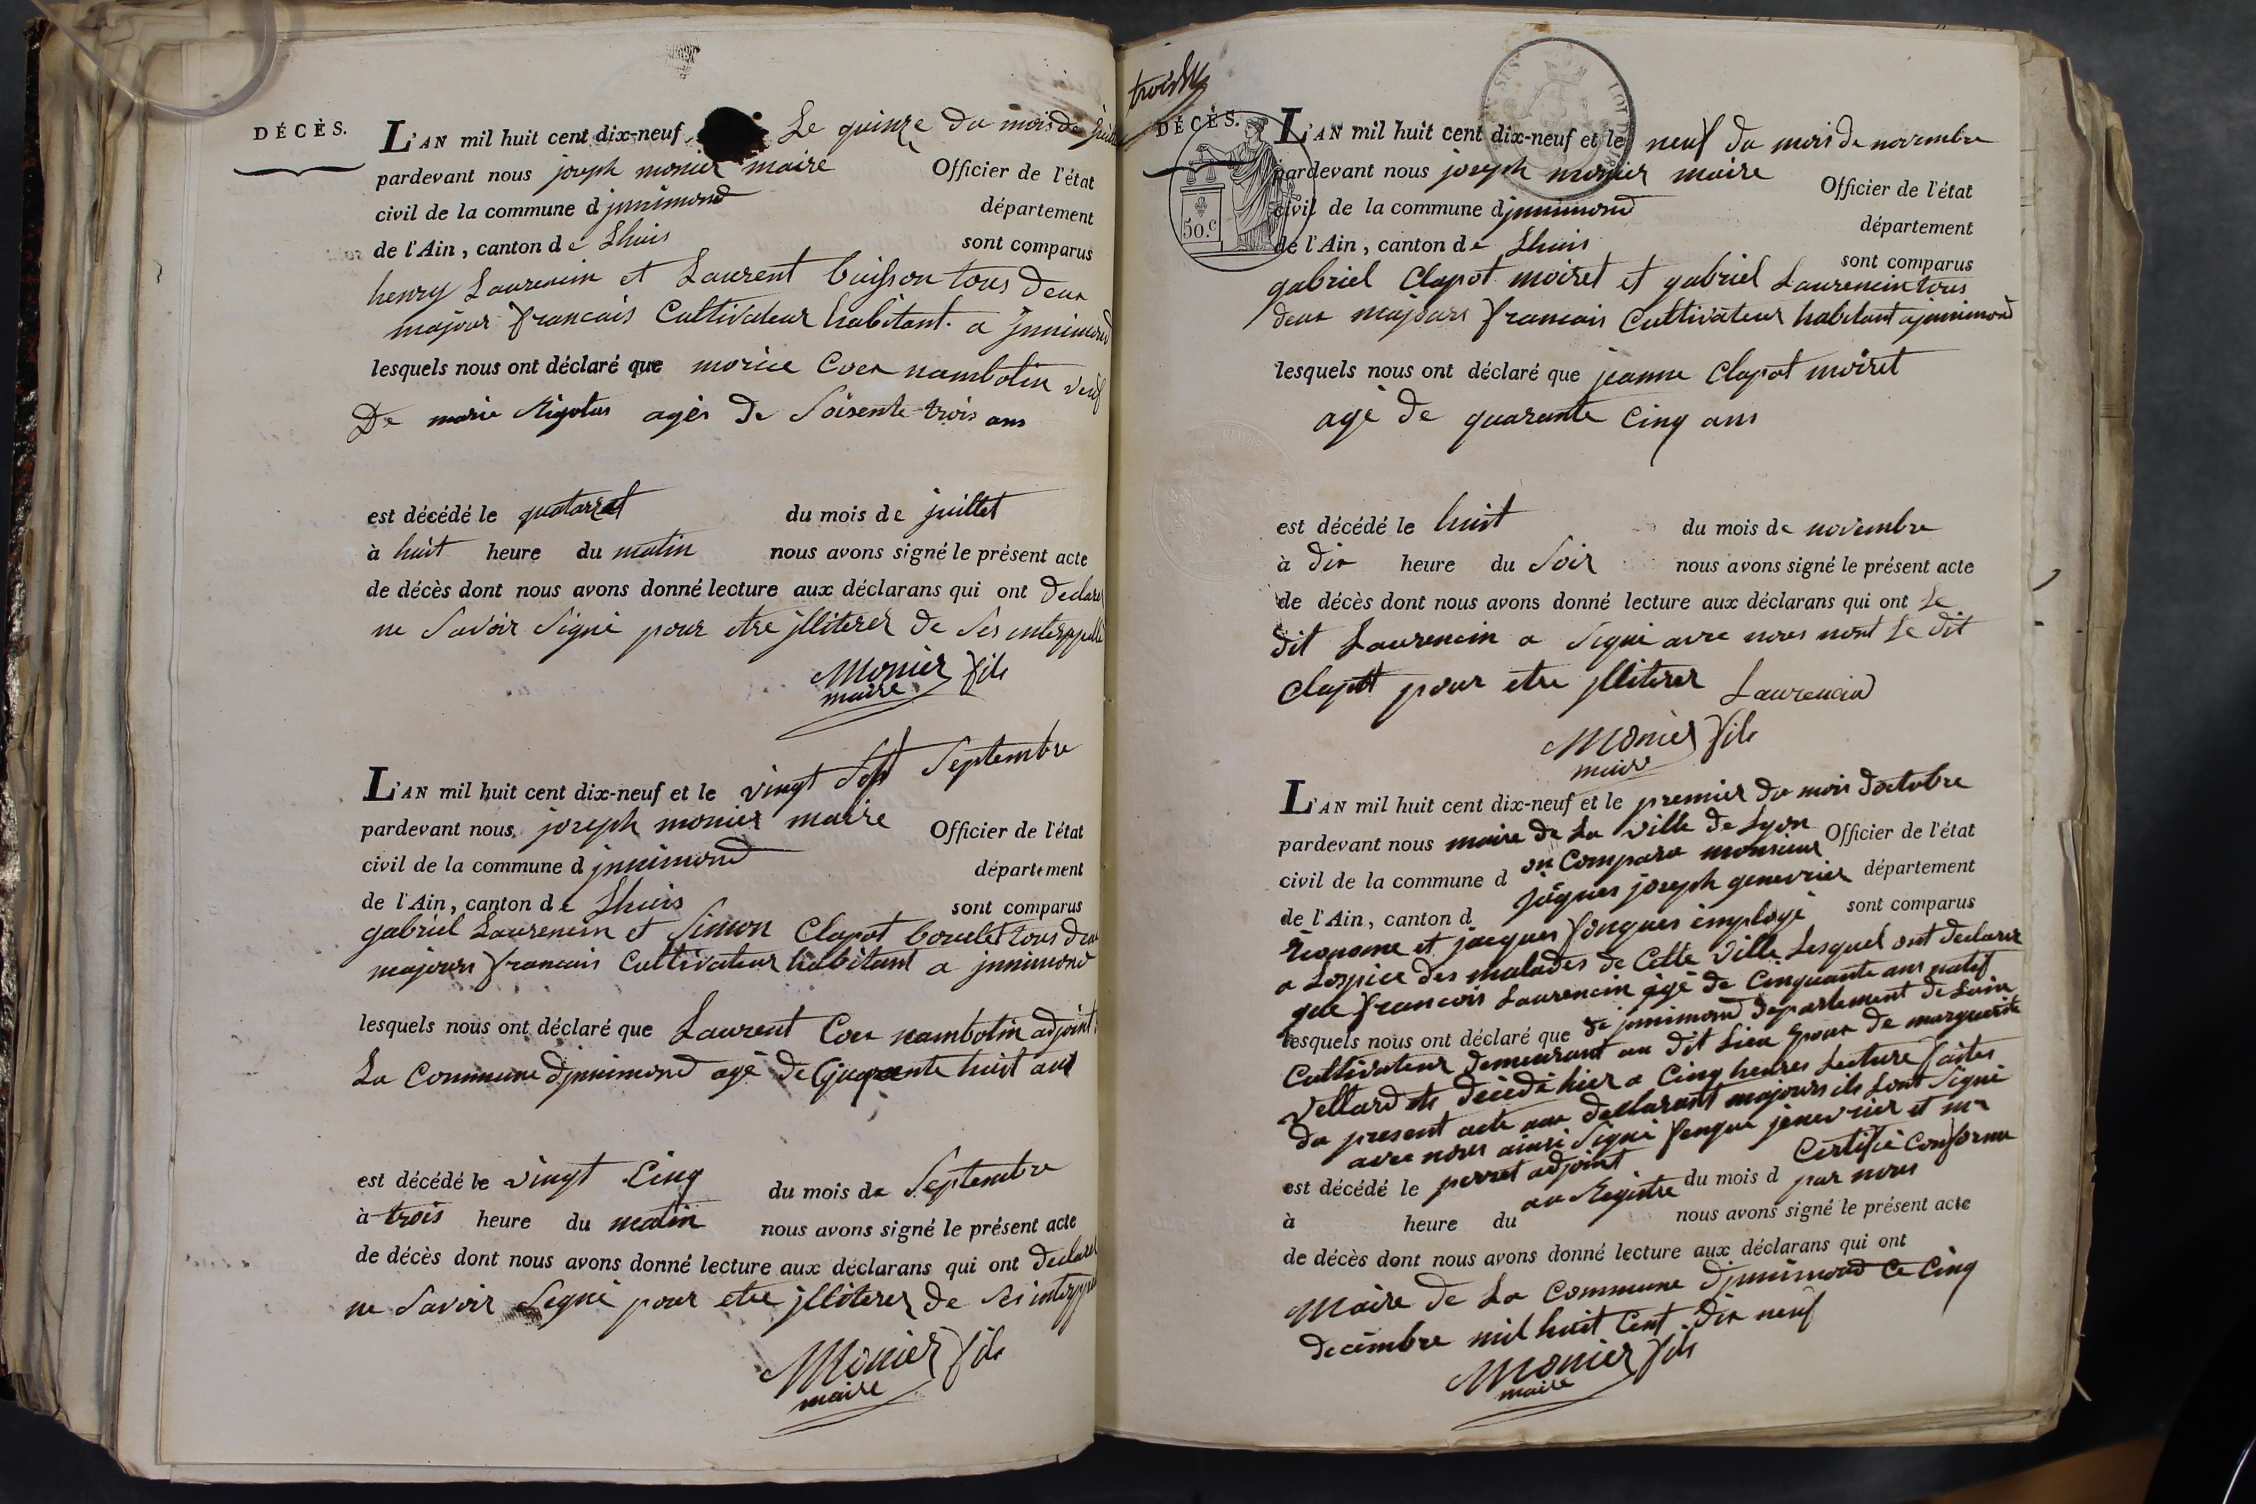 DÉCÈS.
L'AN mil huit cent dix-neuf Le quinze du mois de
pardevant nous joseph monier maire Officier de l'état
civil de la commune d jnnimond département
de l'Ain, canton de Lhuis sont comparus
henry Laurencin et Laurent buisson tous deux
majour francais Cultivateur habitant a Jnnimond
lesquels nous ont déclaré que morice Coex nambotin veuf
De marie Rigolus agés de Soisente trois ans
est décédé le du mois de juillet
à huit heure du matin nous avons signé le présent acte
de décès dont nous avons donné lecture aux déclarans qui ont declarer
ne Savoir Signé pour etre jlliterer de Ses
Monier fils
maire
L'AN mil huit cent dix-neuf et le vingt Sept Septembre
pardevant nous joseph monier maire Officier de l'état
civil de la commune d jnnimond département
de l'Ain, canton de Lhuis sont comparus
gabriel Laurencin et Simon Clapot bouelet tous deux
majours francais Cultivateur habitant a jnnimond
lesquels nous ont déclaré que Laurent Coex nambotin adjoint
La Commune djnnimond agé de quarente huit ans
est décédé le vingt Cinq du mois de Septembre
à trois heure du matin nous avons signé le présent acte
de décès dont nous avons donné lecture aux déclarans qui ont declarer
ne Savoir Signé pour etre jlliterer de Ses
Monier fils
maire
DÉCÈS.
50.c
L'AN mil huit cent dix-neuf et le neuf du mois de novembre
pardevant nous joseph monier maire Officier de l'état
civil de la commune djnnimond département
de l'Ain, canton de Lhuis sont comparus
gabriel Clapot moiret et gabriel Laurencin tous
deux majours francais Cultivateur habitant a jnnimond
lesquels nous ont déclaré que jeanne Clapot moiret
agé de quarante Cinq ans
est décédé le huit du mois de novembre
à dix heure du Soir nous avons signé le présent acte
de décès dont nous avons donné lecture aux déclarans qui ont Le
dit Laurencin a Signé avec nous nont Le dit
Clapot pour etre jlliterer Laurencin
Monier fils
maire
L'AN mil huit cent dix-neuf et le premier du mois doctobre
pardevant nous maire de La ville de Lyon Officier de l'état
civil de la commune d on Comparu monsieur département
de l'Ain, canton d jâques joseph genevrier sont comparus
Econome et jacques fonques employé
a Lospice des malades de Cette Ville Lesquel ont declarer
que francois Laurencin agé de Cinquante ans natif
lesquels nous ont déclaré que de jnnimond departement de Lain
Cultivateur demeurant au dit Lieu Epoux de marguerite
Vettard est décédé hier a Cinq heures Lecture faites
du present acte aux declarant majours ils Lont Signé
avec nous ainsi Signé fonque jenevrier et mr
est décédé le perret adjoint du mois d Certifié Conforme
à heure du au Registre par nous nous avons signé le présent acte
de décès dont nous avons donné lecture aux déclarans qui ont
Maire de La Commune djnnimond ce Cinq
decembre mil huit Cent dix neuf
Monier fils
maire